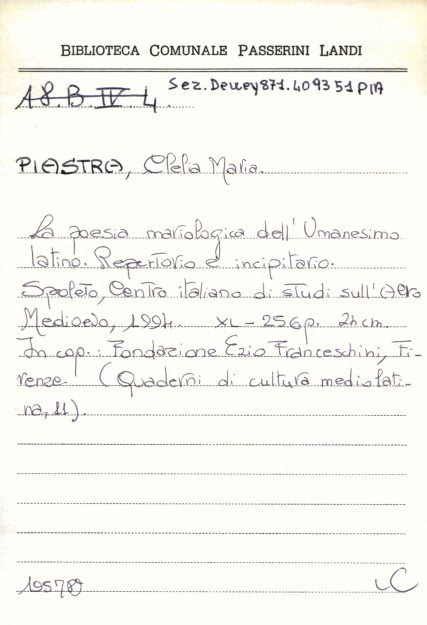 BIBLIOTECA COMUNALE PASSERINI LANDI
Sez. Dewey 871.4093 51 PIA
A8.B.IV.4
PIASTRA, Clelia Maria.
La poesia mariologica dell'Umanesimo
latino. Repertorio e incipitario.
Spoleto, Centro italiano di studi sull'Alto
Medioevo, 1994. XL-256p. 24 cm.
In cop.: Fondazione Ezio Franceschini, Fi-
renze. (Quaderni di cultura mediolati-
na, 11).
195780